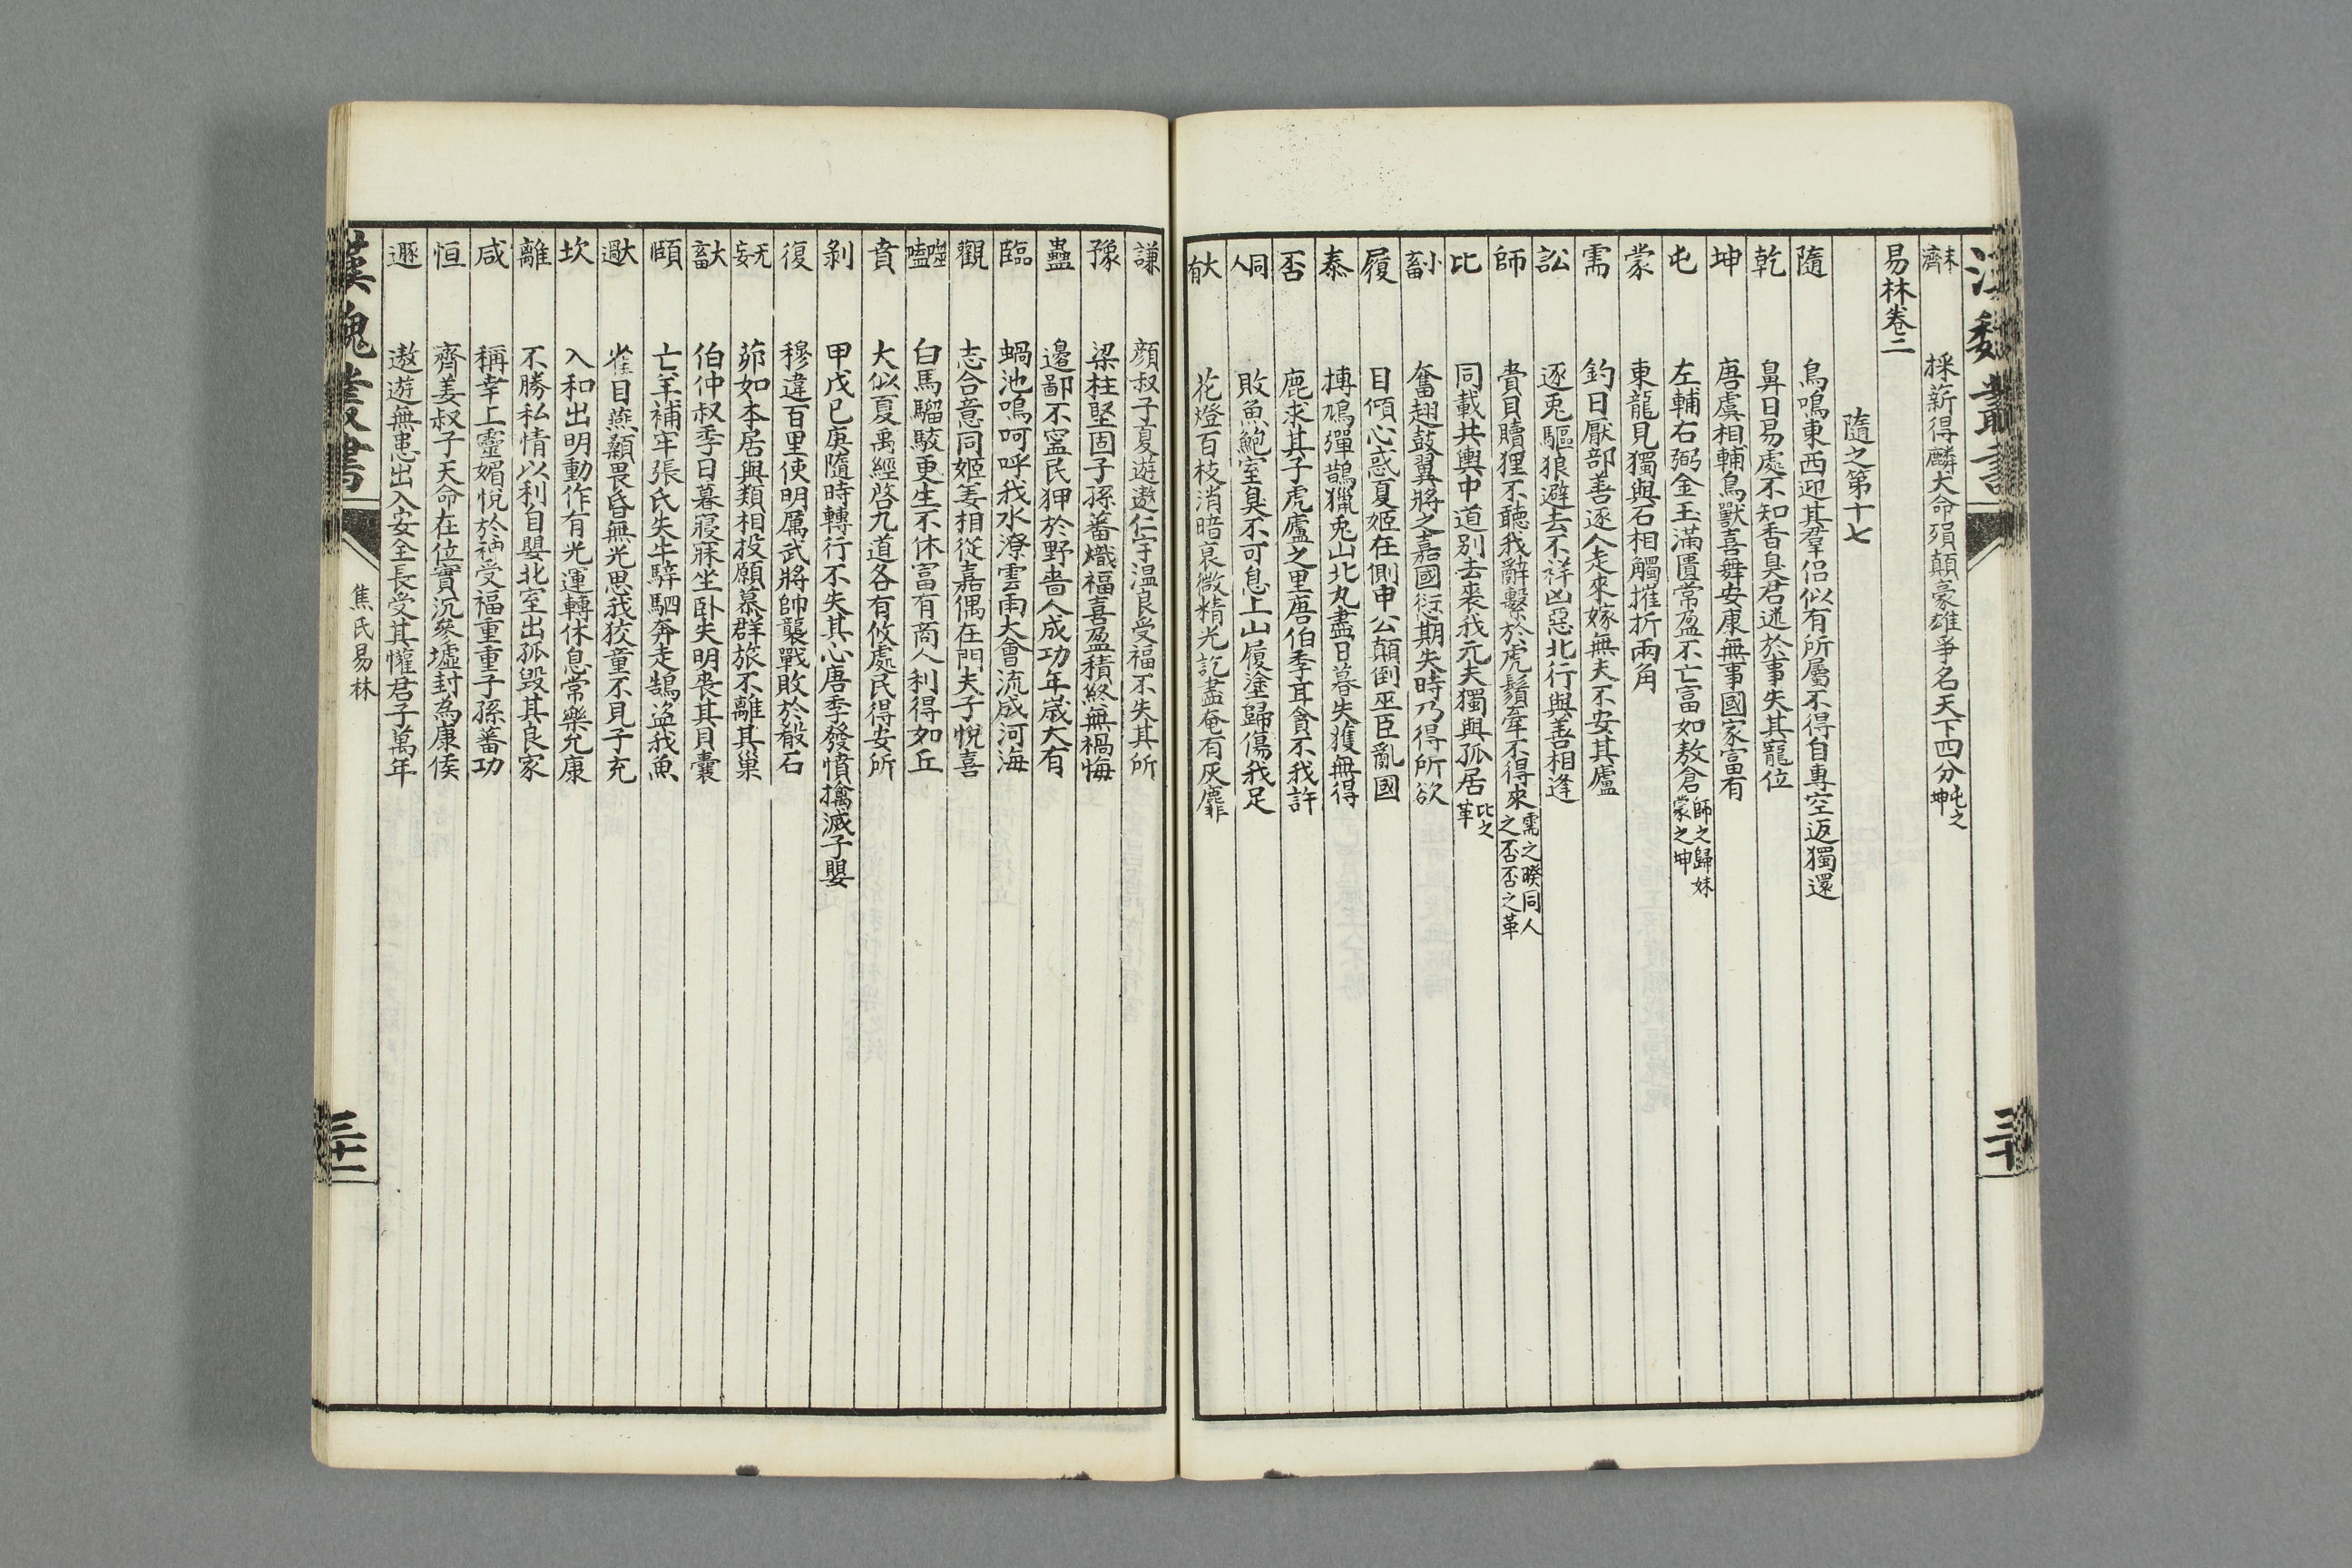 未濟 採薪得麟大命殞顛豪雄爭名天下四分屯之坤
易林卷二
隨之第十七
隨 鳥鳴東西迎其羣侶似有所屬不得自專空返獨還
乾 鼻目易處不知香臭君迷於事失其寵位
坤 唐虞相輔鳥獸喜舞安康無事國家富有
屯 左輔右弼金玉滿匱常盈不亡富如敖倉師之歸妹蒙之坤
蒙 東龍見獨與石相觸摧折兩角
需 釣目厭部善逐人走來嫁無夫不安其廬
訟 逐兎驅狼避去不祥凶惡北行與善相逢
師 賫貝贖狸不聽我辭繫於虎鬚牽不得來需之睽同人之否否之革
比 同載共輿中道別去喪我元夫獨與孤居比之革
小畜 奮翅鼓翼將之嘉國愆期失時乃得所欲
履 目傾心惑夏姬在側申公顛倒巫臣亂國
泰 搏鳩彈鵲獵兎山北丸盡日暮失獲無得
否 鹿求其子虎廬之里唐伯季耳貪不我許
同人 敗魚鮑室臭不可息上山履塗歸傷我足
大有 花燈百枝消暗衰微精光訖盡奄有灰麋
謙 顏叔子夏遊遨仁宇温良受福不失其所
豫 梁柱堅固子孫蕃熾福喜盈積終無禍悔
蠱 邊鄙不寧民狎於野嗇人成功年歲大有
臨 蝸池鳴呵呼我水潦雲雨大會流成河海
觀 志合意同姬姜相從嘉偶在門夫子悅喜
噬嗑 白馬騮駁更生不休富有商人利得如丘
賁 大似夏禹經啓九道各有攸處民得安所
剝 甲戊已庚隨時轉行不失其心唐季發憤擒滅子嬰
復 穆違百里使明厲武將帥襲戰敗於殽石
无妄 茆如本居與類相投願慕群旅不離其巢
大畜 伯仲叔季日暮寢寐坐卧失明喪其貝囊
頤 亡羊補牢張氏失牛騂駟奔走鵠盜我魚
大過 雀目燕顙畏昏無光思我狡童不見子充
坎 入和出明動作有光運轉休息常樂允康
離 不勝私情以利自嬰北室出孤毁其良家
咸 稱幸上靈媚悅於神受福重重子孫蕃功
恒 齊姜叔子天命在位實沉參墟封為康侯
遯 遨遊無患出入安全長受其懽君子萬年
漢魏叢書
焦氏易林
三十一